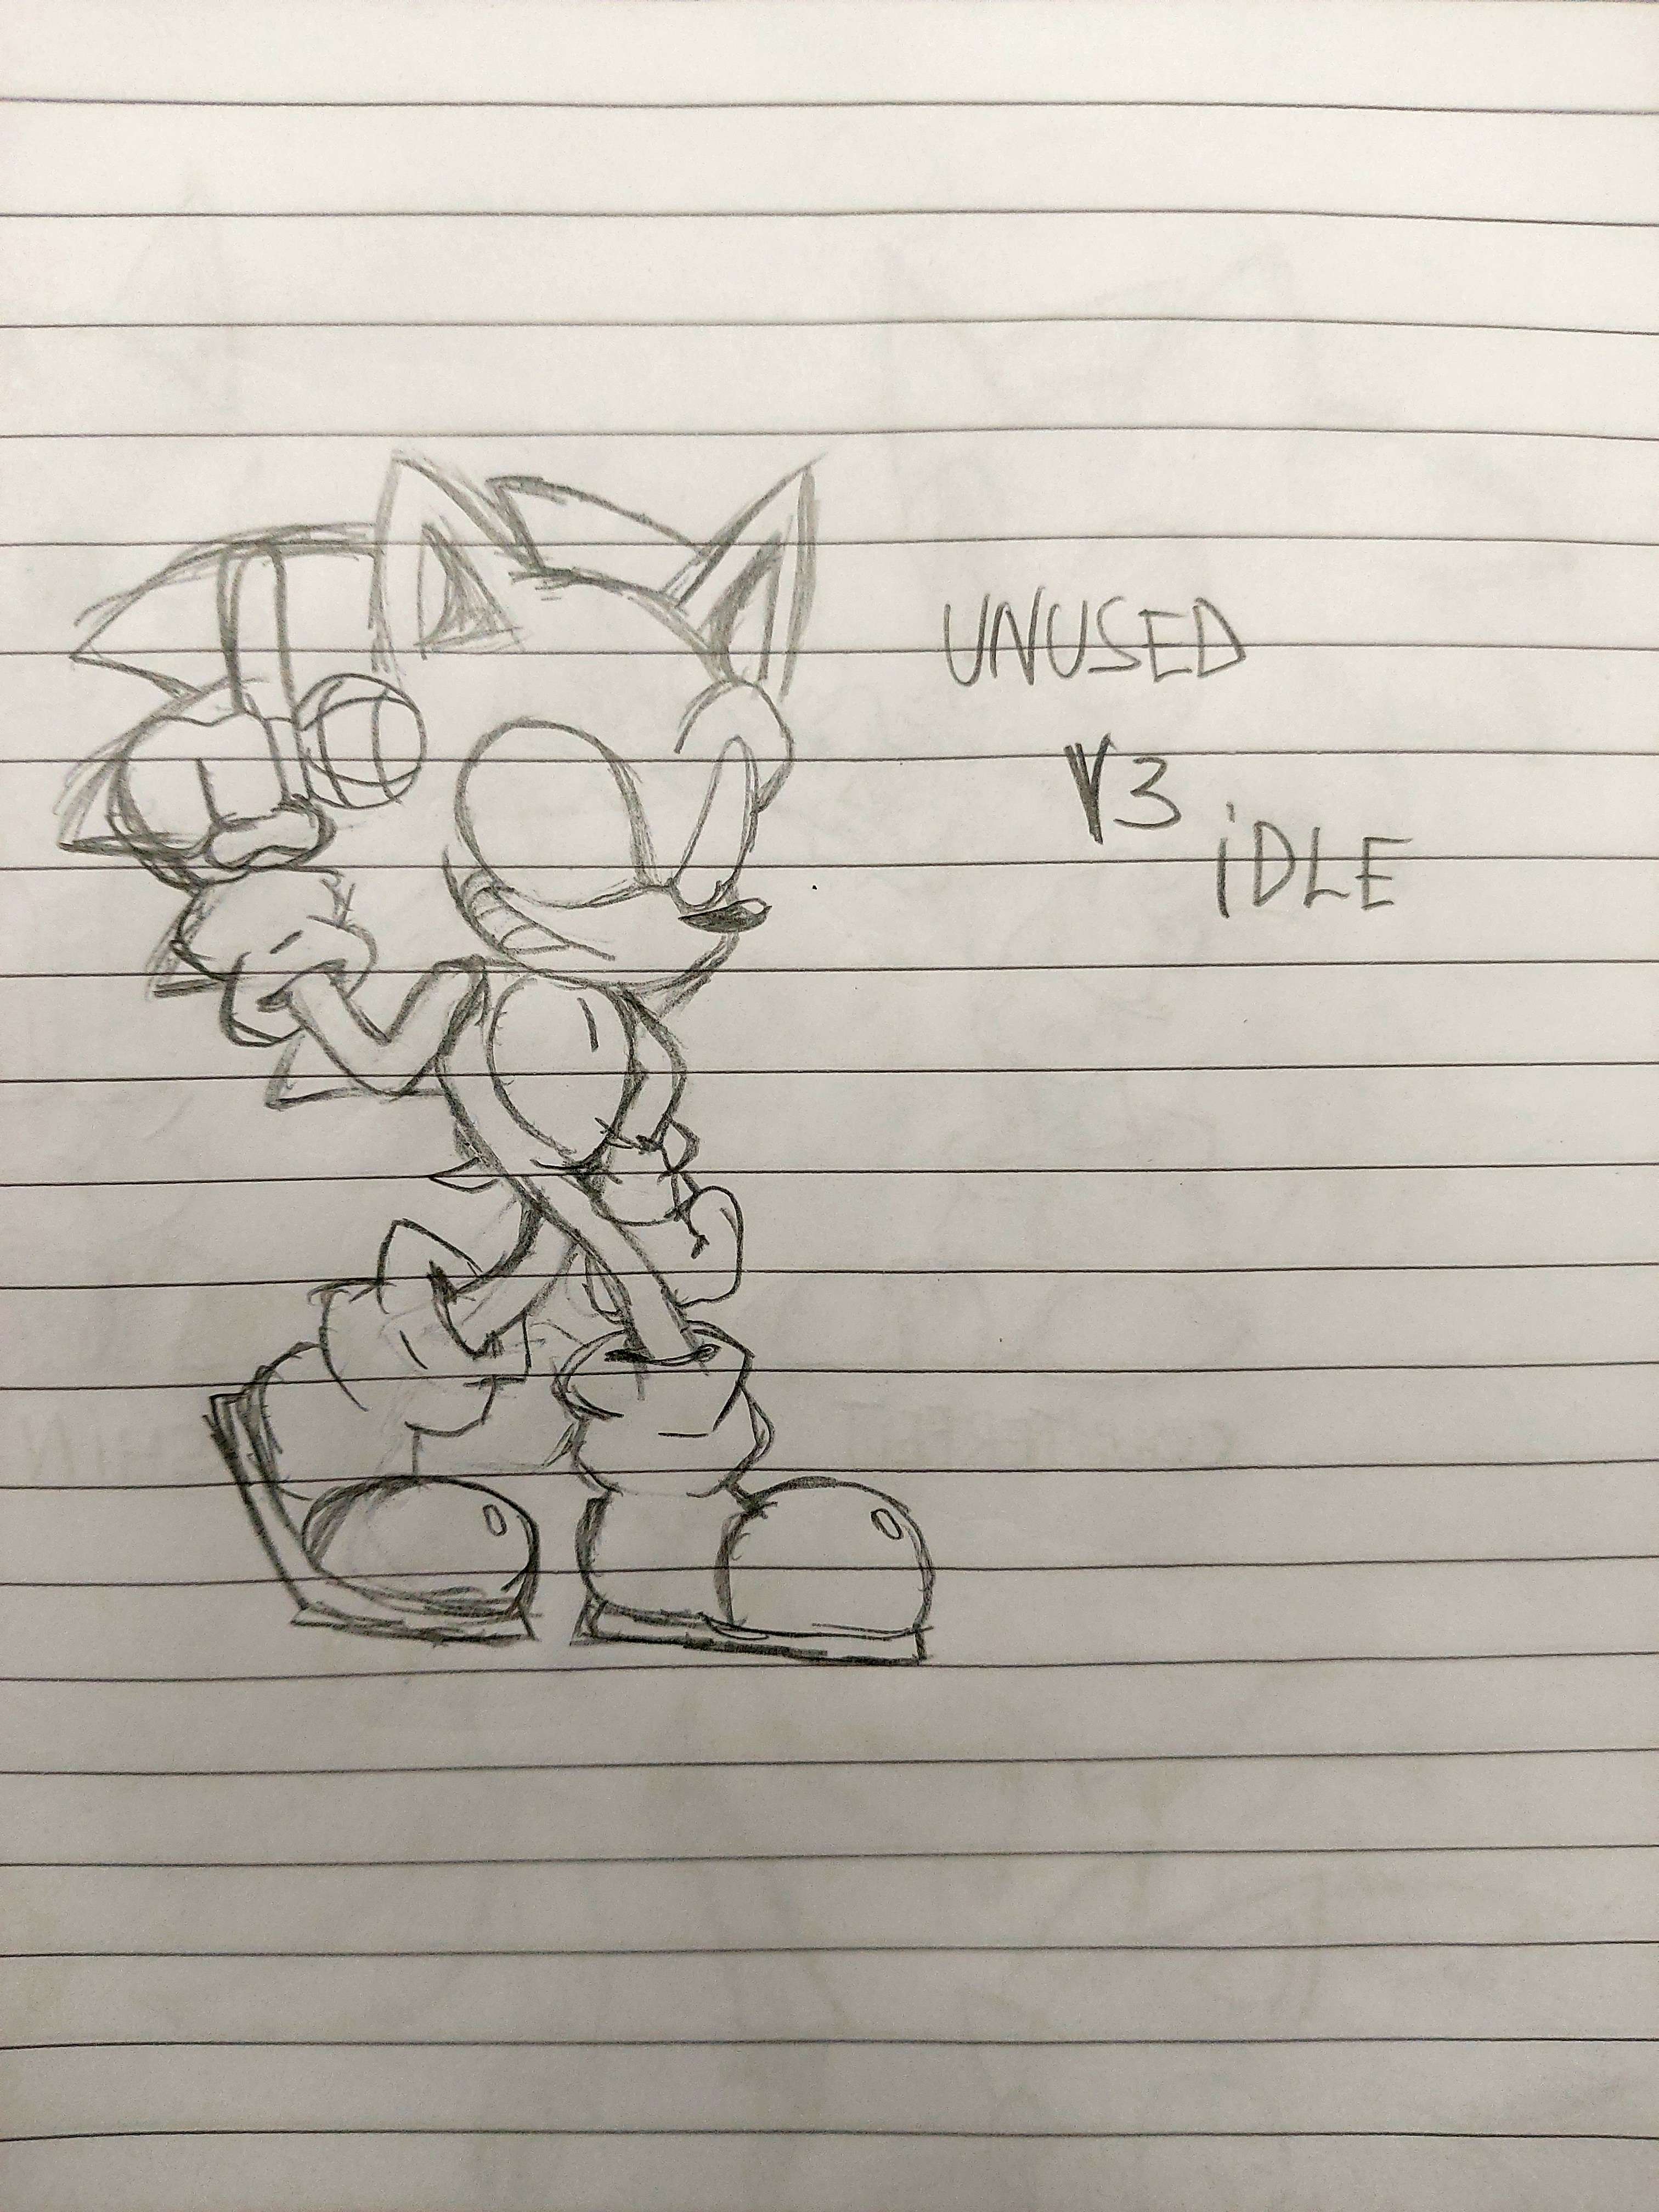 UNUSED
V3
iDLE